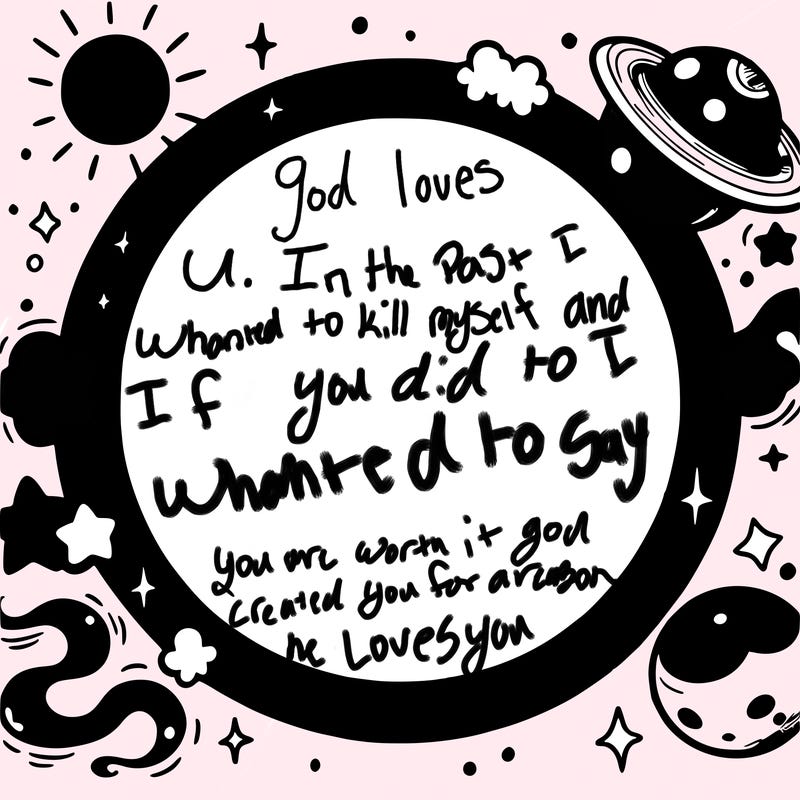 god loves
U. In the Past I
whanted to kill myself and
If you did to I
whanted to say
you are worth it god
created you for a reason
he Loves you